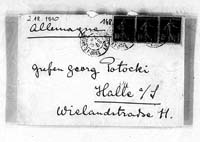 2.12.1910
Allemagne
Grafen Georg Potocki
Halle a/S
Wielandstrasse 11.